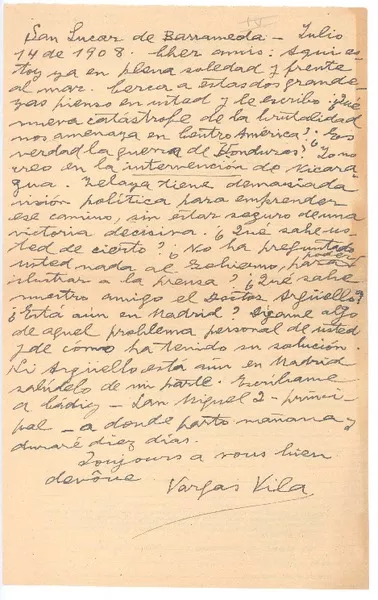 IV
San Lucar de Barrameda - Julio
14 de 1908. Cher amie: Aqui es-
toy ya en plena soledad y frente
al mar. Cerca a estas dos grande-
zas pienso en usted y le escribo ¿Qué
nueva catástrofe de la brutalidad
nos amenaza en Centro América? ¿Es
verdad la guerra de Honduras? ¿Yo no
creo en la intervención de Nicara
gua. Zelaya tiene demasiada
visión política para emprender
ese camino, sin estar seguro de una
victoria decisiva. ¿Qué sabe us-
ted de cierto? ¿No ha preguntado
usted nada al Gobierno, para poder
ilustrar a la prensa? ¿Qué sabe
nuestro amigo el Doctor Argüello?
¿Está aún en Madrid? Dígame algo
de aquel problema personal de usted
y de cómo ha tenido su solución.
Si Argüello está aún en Madrid
salúdelo de mi parte. Escríbame
a Cádiz - San Miguel 2 - princi-
pal - a donde parto mañana y
duraré diez días.
Toujours a vous bien
devôue
Vargas Vila